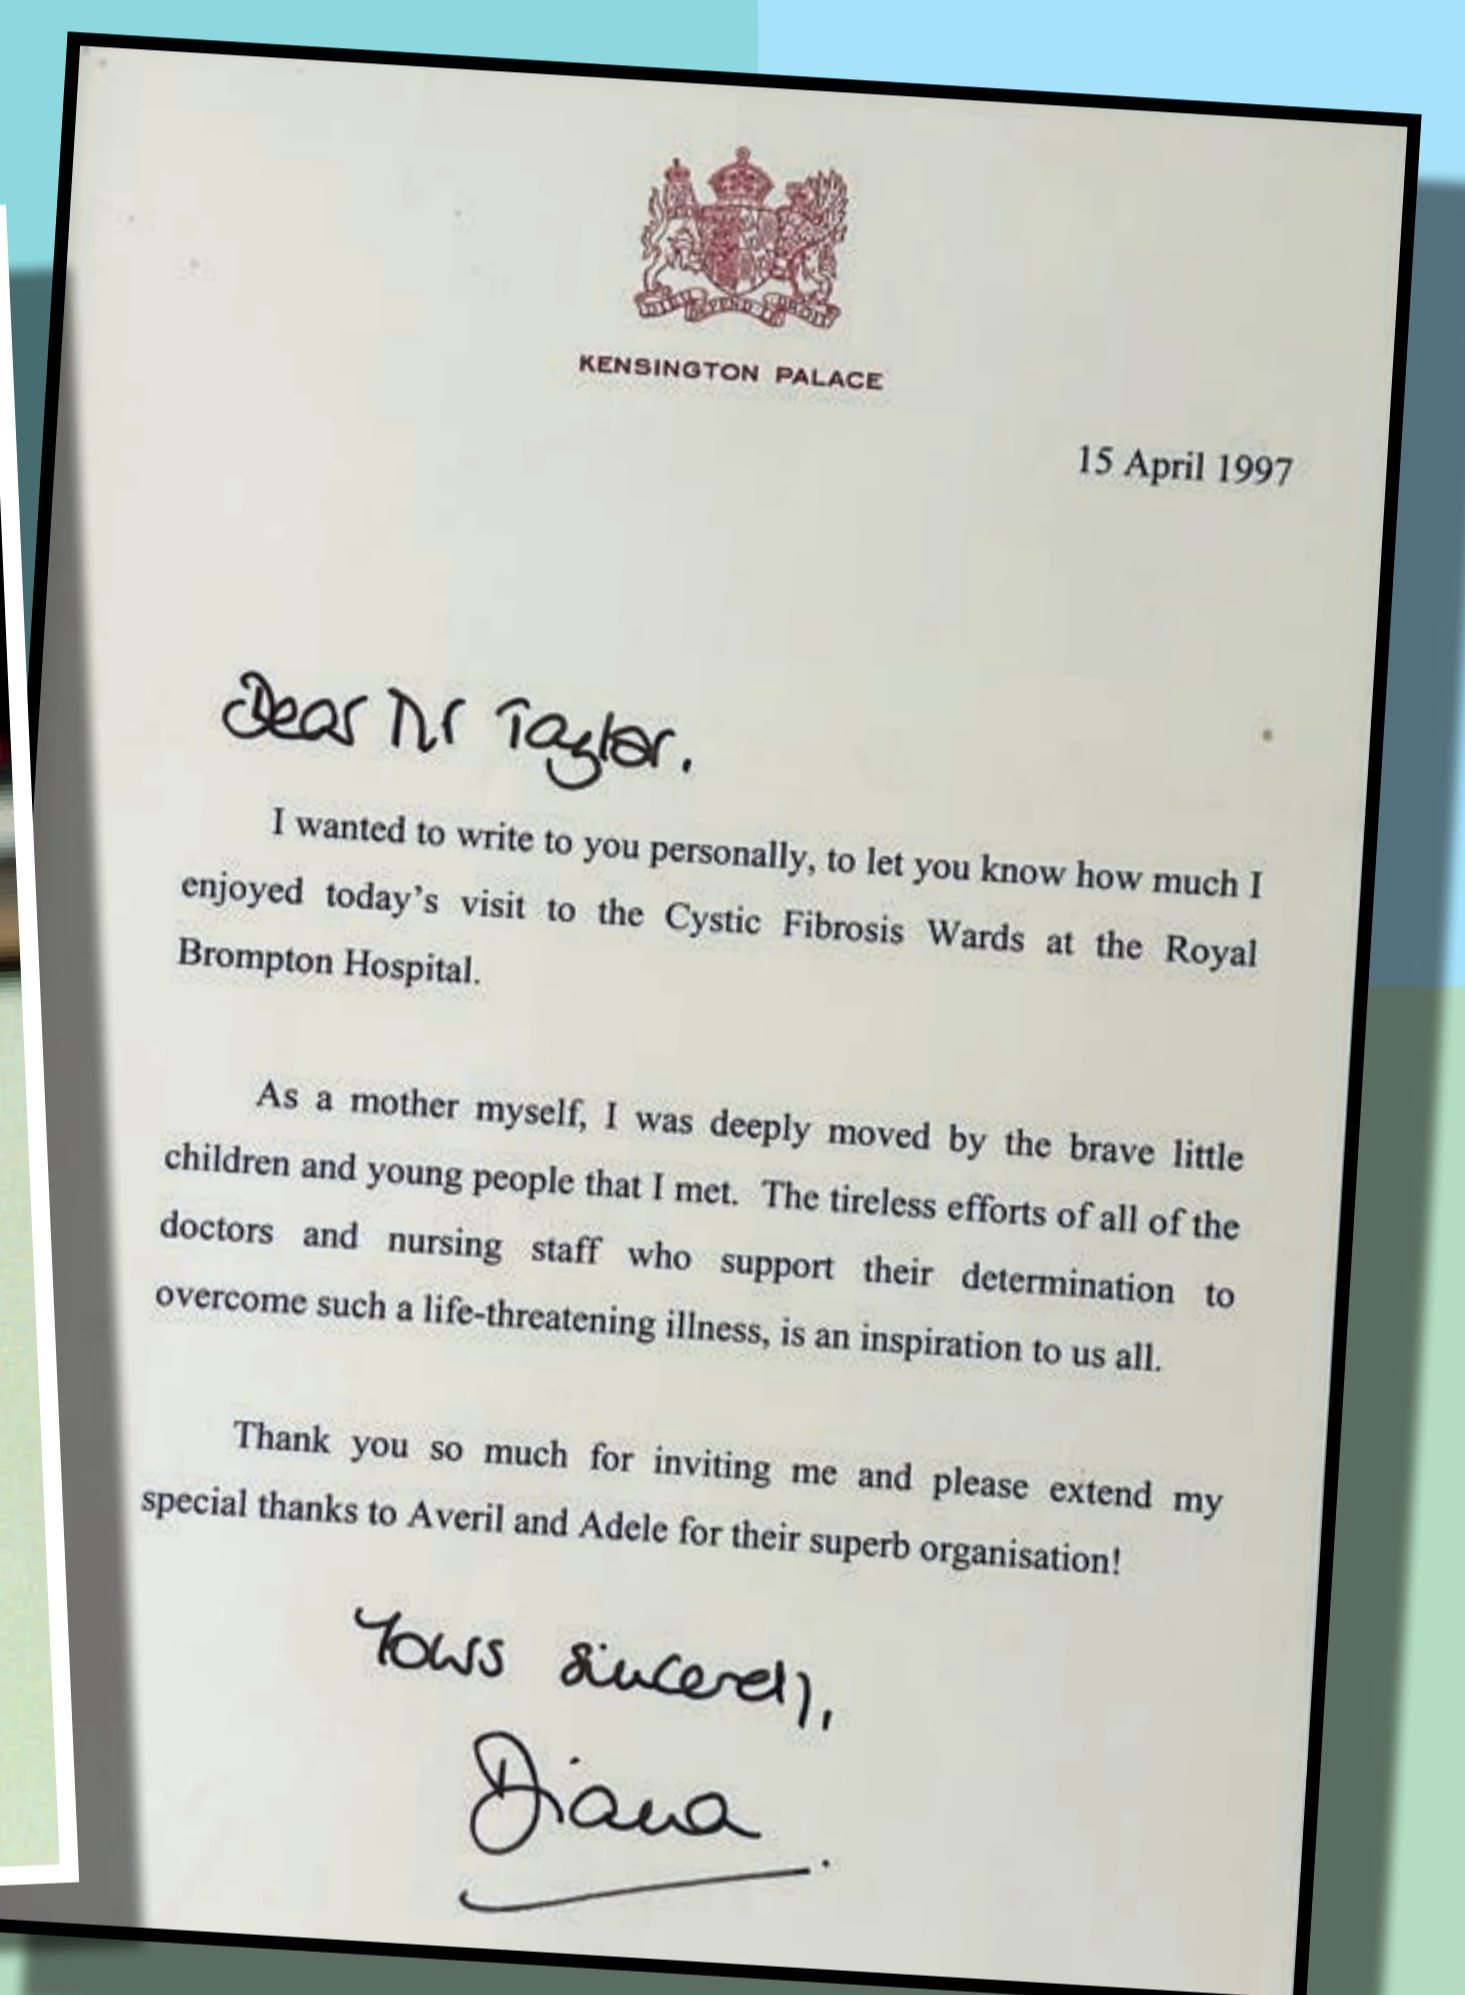 DIEU ET MON DROIT
KENSINGTON PALACE
15 April 1997
Dear Mr Taylor.
I wanted to write to you personally, to let you know how much I
enjoyed today's visit to the Cystic Fibrosis Wards at the Royal
Brompton Hospital.
As a mother myself, I was deeply moved by the brave little
children and young people that I met. The tireless efforts of all of the
doctors and nursing staff who support their determination to
overcome such a life-threatening illness, is an inspiration to us all.
Thank you so much for inviting me and please extend my
special thanks to Averil and Adele for their superb organisation!
Yours sincerely,
Diana.